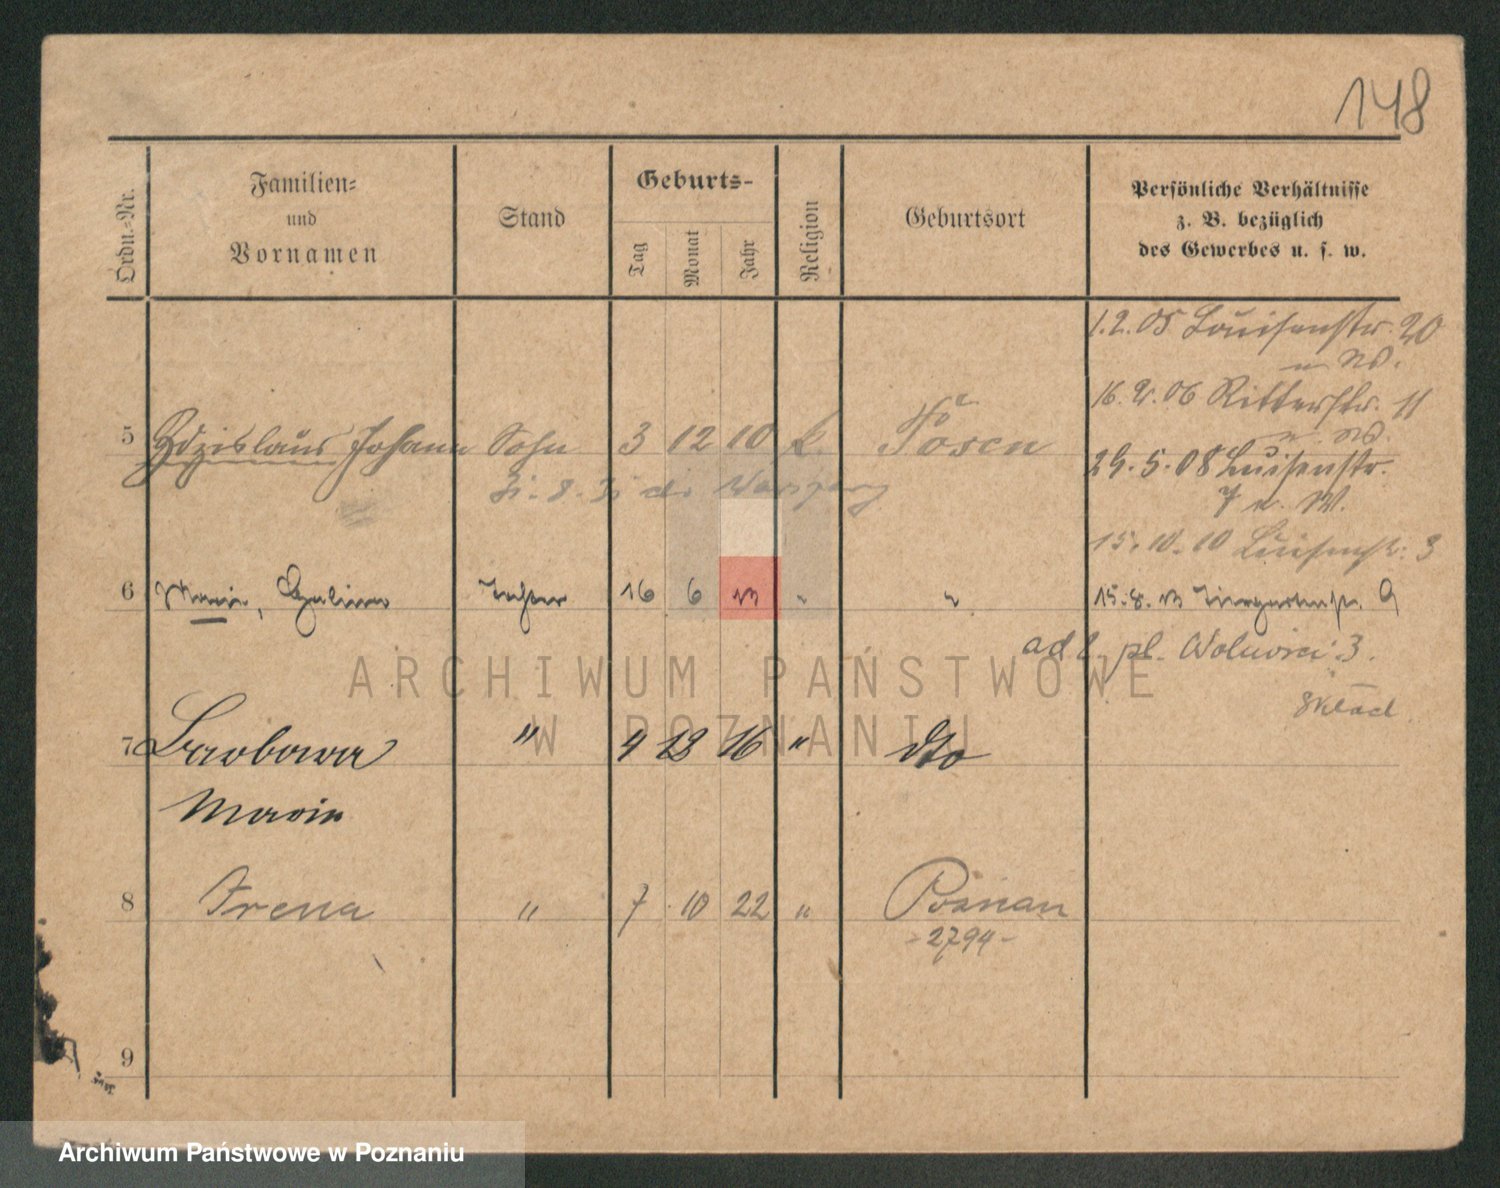 148
Ordn.-Nr.
Familien-
und
Vornamen
Stand
Geburts-
Tag
Monat
Jahr
Religion
Geburtsort
Persönliche Verhältnisse
z. B. bezüglich
des Gewerbes u. s. w.
1.2.05 Louisenstr. 20
u. W.
16.2.06 Ritterstr. 11
u. W.
5 Zdzislaus Johann Sohn 3 12 10 k. Posen
29.5.08 Luisenstr.
7 u. W.
15.10.10 Luisenstr. 3
6 Marie, Halina Tochter 16 6 13 " "
15.8.13 Tiergartenstr. 9
ad 6. pl. Wolności 3.
skład
7 Barbara " 4 12 16 " dto
Maria
8 Irena " 7 10 22 " Poznań
-2794-
9
ARCHIWUM PAŃSTWOWE
W POZNANIU
Archiwum Państwowe w Poznaniu